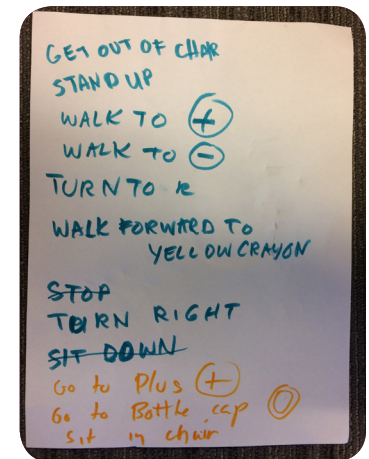 GET OUT OF CHAR
STAND UP
WALK TO +
WALK TO −
TURN TO
WALK FORWARD TO
YELLOW CRAYON
STOP
TURN RIGHT
SIT DOWN
Go to Plus +
Go to Bottle cap
sit in chair